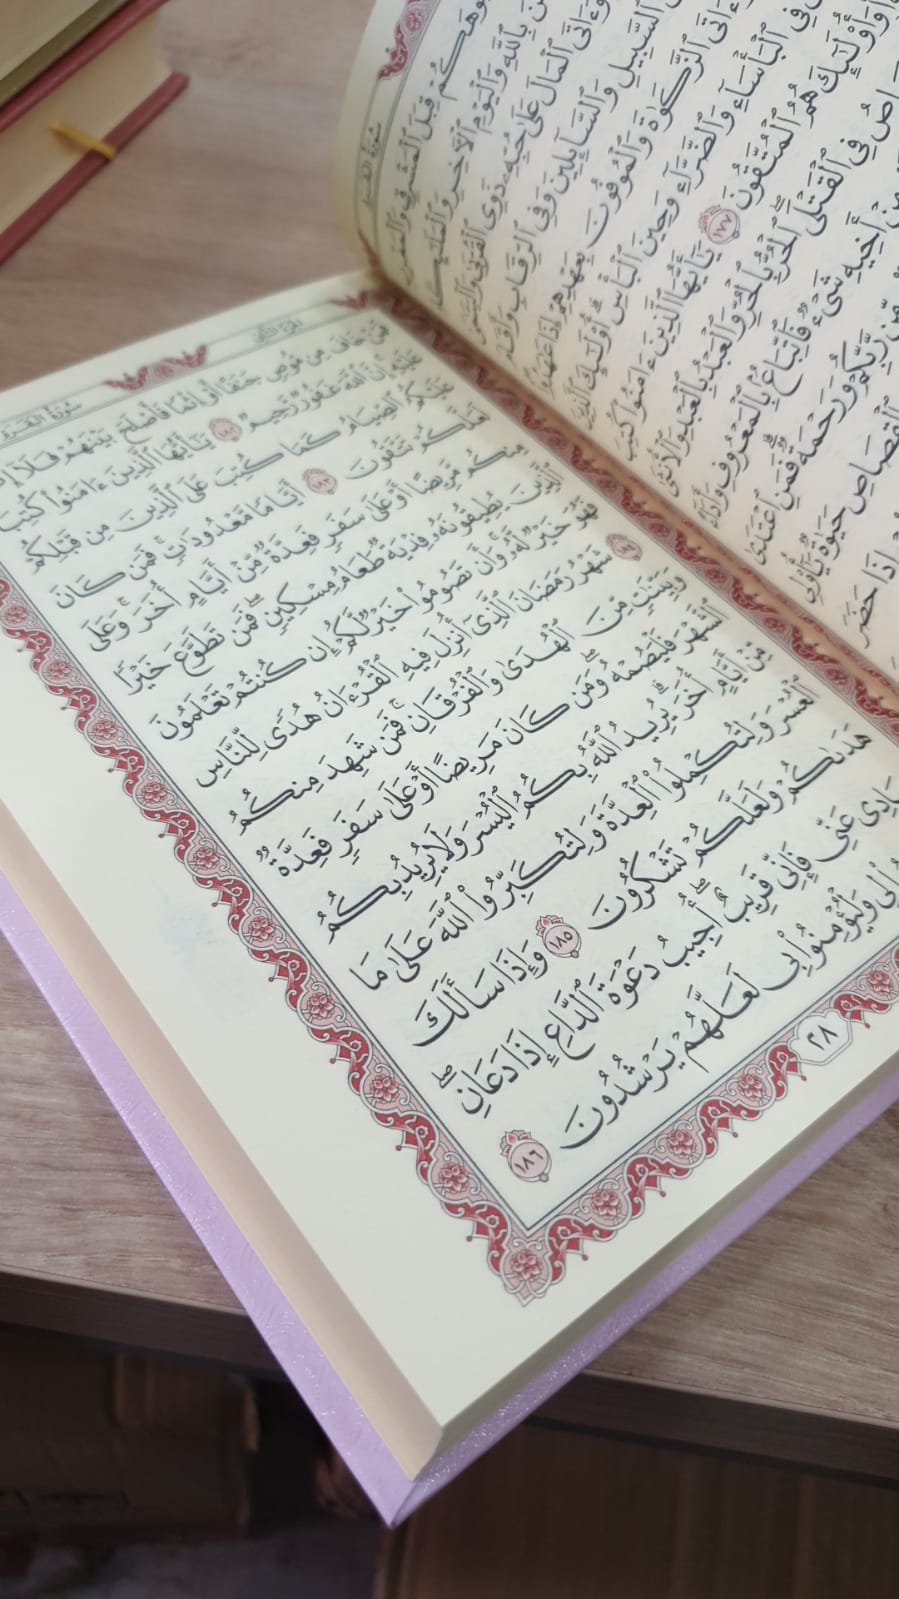 وَٱلْمَغْرِبِ قِبَلَ ٱلْمَشْرِقِ وُجُوهَكُمْ
بِٱللَّهِ وَٱلْيَوْمِ ٱلْأَخِرِ
وَءَاتَى ٱلْمَالَ عَلَىٰ حُبِّهِۦ ذَوِى ٱلْقُرْبَىٰ
ٱلسَّبِيلِ وَٱلسَّآئِلِينَ وَفِى ٱلرِّقَابِ
وَءَاتَى ٱلزَّكَوٰةَ وَٱلْمُوفُونَ بِعَهْدِهِمْ إِذَا
فِى ٱلْبَأْسَآءِ وَٱلضَّرَّآءِ وَحِينَ ٱلْبَأْسِ أُو۟لَٰٓئِكَ ٱلَّذِينَ
وَأُو۟لَٰٓئِكَ هُمُ ٱلْمُتَّقُونَ ١٧٧ يَٰٓأَيُّهَا ٱلَّذِينَ ءَامَنُوا۟ كُتِبَ
فِى ٱلْقَتْلَى ٱلْحُرُّ بِٱلْحُرِّ وَٱلْعَبْدُ بِٱلْعَبْدِ وَٱلْأُنثَىٰ
مِنْ أَخِيهِ شَىْءٌ فَٱتِّبَاعٌۢ بِٱلْمَعْرُوفِ وَأَدَآءٌ
مِّن رَّبِّكُمْ وَرَحْمَةٌ فَمَنِ ٱعْتَدَىٰ
ٱلْقِصَاصِ حَيَوٰةٌ يَٰٓأُو۟لِى
إِذَا حَضَرَ
سُورَةُ البَقَرَةِ
فَمَنْ خَافَ مِن مُّوصٍ جَنَفًا أَوْ إِثْمًا فَأَصْلَحَ بَيْنَهُمْ فَلَآ إِثْمَ
عَلَيْهِ إِنَّ ٱللَّهَ غَفُورٌ رَّحِيمٌ ١٨٢ يَٰٓأَيُّهَا ٱلَّذِينَ ءَامَنُوا۟ كُتِبَ
عَلَيْكُمُ ٱلصِّيَامُ كَمَا كُتِبَ عَلَى ٱلَّذِينَ مِن قَبْلِكُمْ
لَعَلَّكُمْ تَتَّقُونَ ١٨٣ أَيَّامًا مَّعْدُودَٰتٍ ۚ فَمَن كَانَ
مِنكُم مَّرِيضًا أَوْ عَلَىٰ سَفَرٍ فَعِدَّةٌ مِّنْ أَيَّامٍ أُخَرَ ۚ وَعَلَى
ٱلَّذِينَ يُطِيقُونَهُۥ فِدْيَةٌ طَعَامُ مِسْكِينٍ ۖ فَمَن تَطَوَّعَ خَيْرًا
فَهُوَ خَيْرٌ لَّهُۥ ۚ وَأَن تَصُومُوا۟ خَيْرٌ لَّكُمْ ۖ إِن كُنتُمْ تَعْلَمُونَ
١٨٤ شَهْرُ رَمَضَانَ ٱلَّذِىٓ أُنزِلَ فِيهِ ٱلْقُرْءَانُ هُدًى لِّلنَّاسِ
وَبَيِّنَٰتٍ مِّنَ ٱلْهُدَىٰ وَٱلْفُرْقَانِ ۚ فَمَن شَهِدَ مِنكُمُ
ٱلشَّهْرَ فَلْيَصُمْهُ ۖ وَمَن كَانَ مَرِيضًا أَوْ عَلَىٰ سَفَرٍ فَعِدَّةٌ
مِّنْ أَيَّامٍ أُخَرَ ۗ يُرِيدُ ٱللَّهُ بِكُمُ ٱلْيُسْرَ وَلَا يُرِيدُ بِكُمُ
ٱلْعُسْرَ وَلِتُكْمِلُوا۟ ٱلْعِدَّةَ وَلِتُكَبِّرُوا۟ ٱللَّهَ عَلَىٰ مَا
هَدَىٰكُمْ وَلَعَلَّكُمْ تَشْكُرُونَ ١٨٥ وَإِذَا سَأَلَكَ
عِبَادِى عَنِّى فَإِنِّى قَرِيبٌ ۖ أُجِيبُ دَعْوَةَ ٱلدَّاعِ إِذَا دَعَانِ ۖ
لِى وَلْيُؤْمِنُوا۟ بِى لَعَلَّهُمْ يَرْشُدُونَ ١٨٦
٢٨